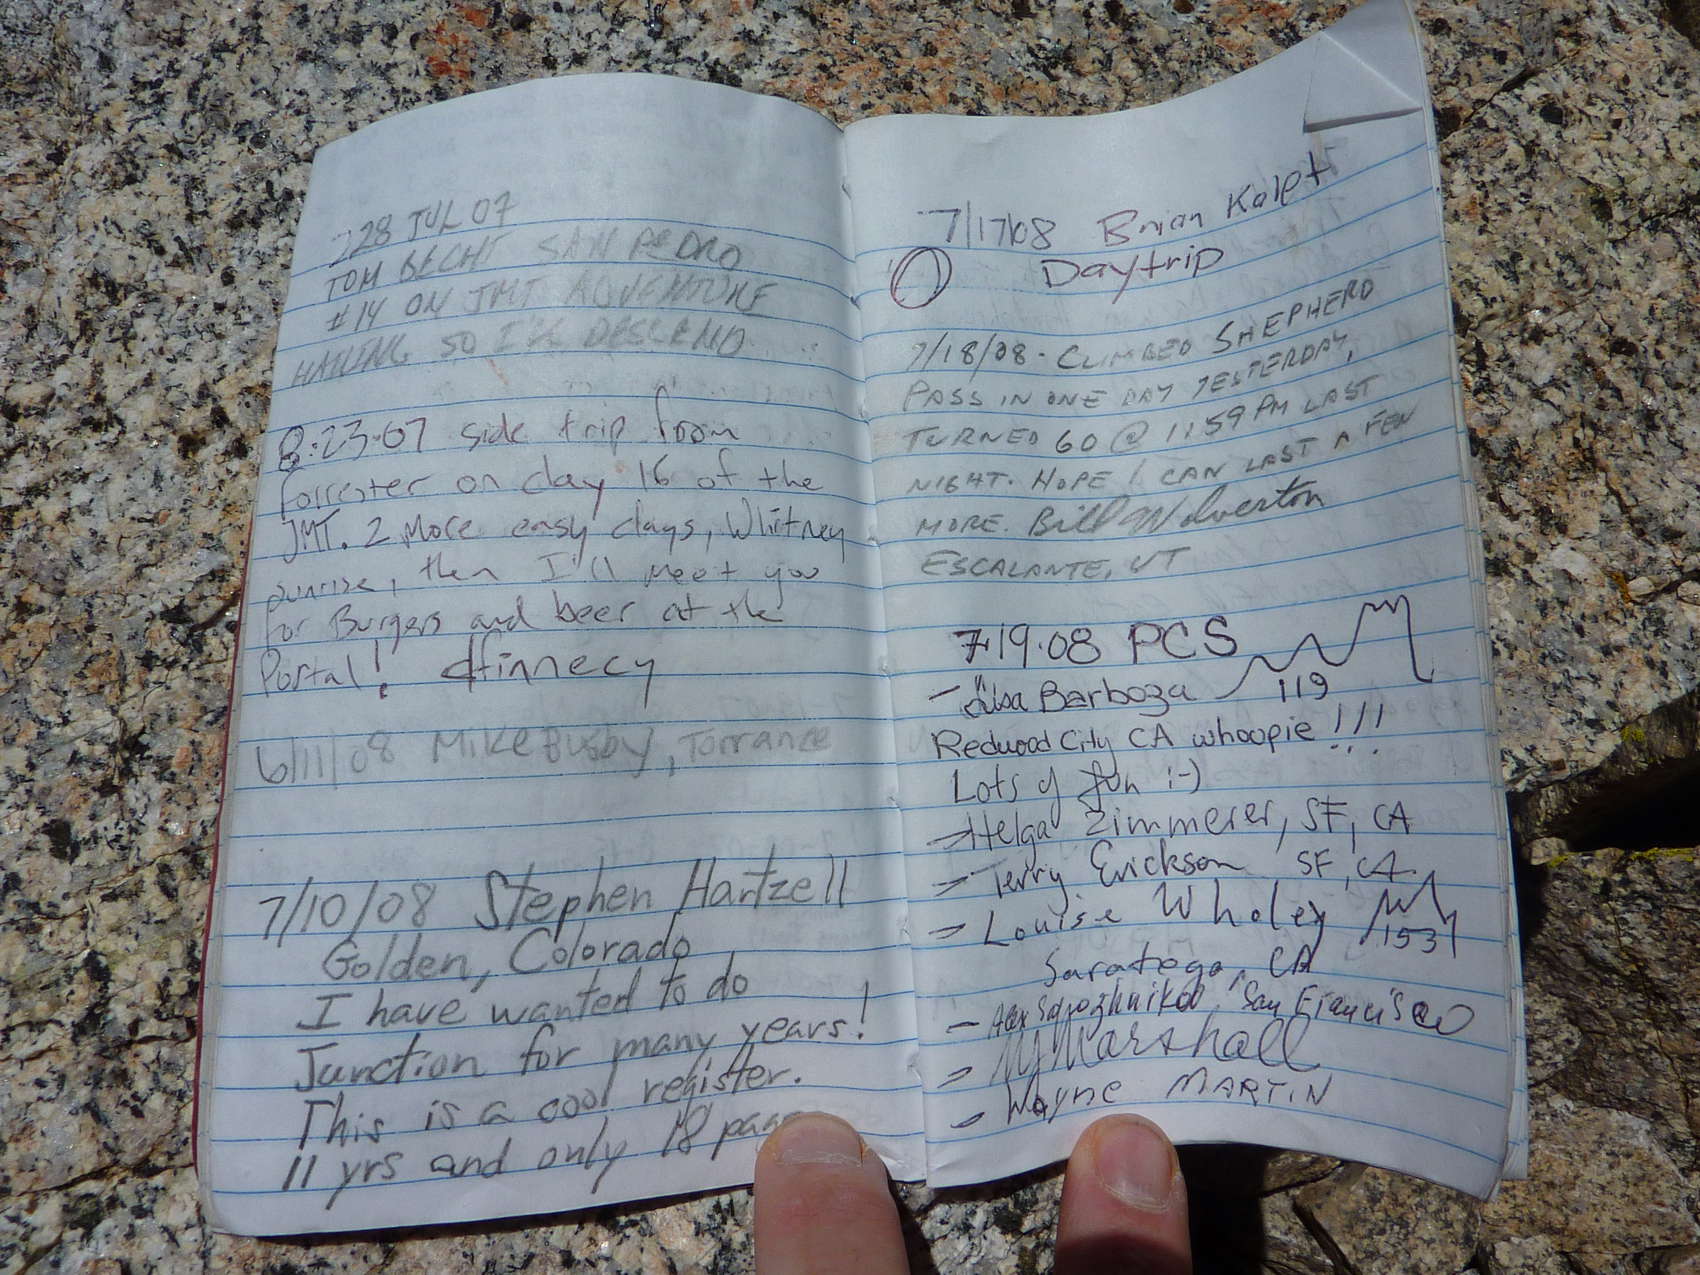 28 JUL 07
TOM BECHT SAN PEDRO
#14 ON JMT ADVENTURE
HAILING SO I'LL DESCEND
8.23.07 side trip from
Forrester on day 16 of the
JMT. 2 More easy days, Whitney
sunrise, then I'll meet you
for Burgers and beer at the
Portal! dfinnecy
6/11/08 Mike Busby, Torrance
7/10/08 Stephen Hartzell
Golden, Colorado
I have wanted to do
Junction for many years!
This is a cool register.
11 yrs and only 18
7/17/08 Brian Kalet
Daytrip
7/18/08 - CLIMBED SHEPHERD
PASS IN ONE DAY YESTERDAY,
TURNED 60 @ 11:59 PM LAST
NIGHT. HOPE I CAN LAST A FEW
MORE. Bill Wolverton
ESCALANTE, UT
7.19.08 PCS
- Lisa Barboza 119
Redwood City CA whoopie!!!
Lots of fun :-)
- Helga Zimmerer, SF, CA
- Terry Erickson SF, CA
- Louise Wholey 153
Saratoga, CA
- Alex Sapozhnikov San Francisco
- Marshall
- Wayne MARTIN